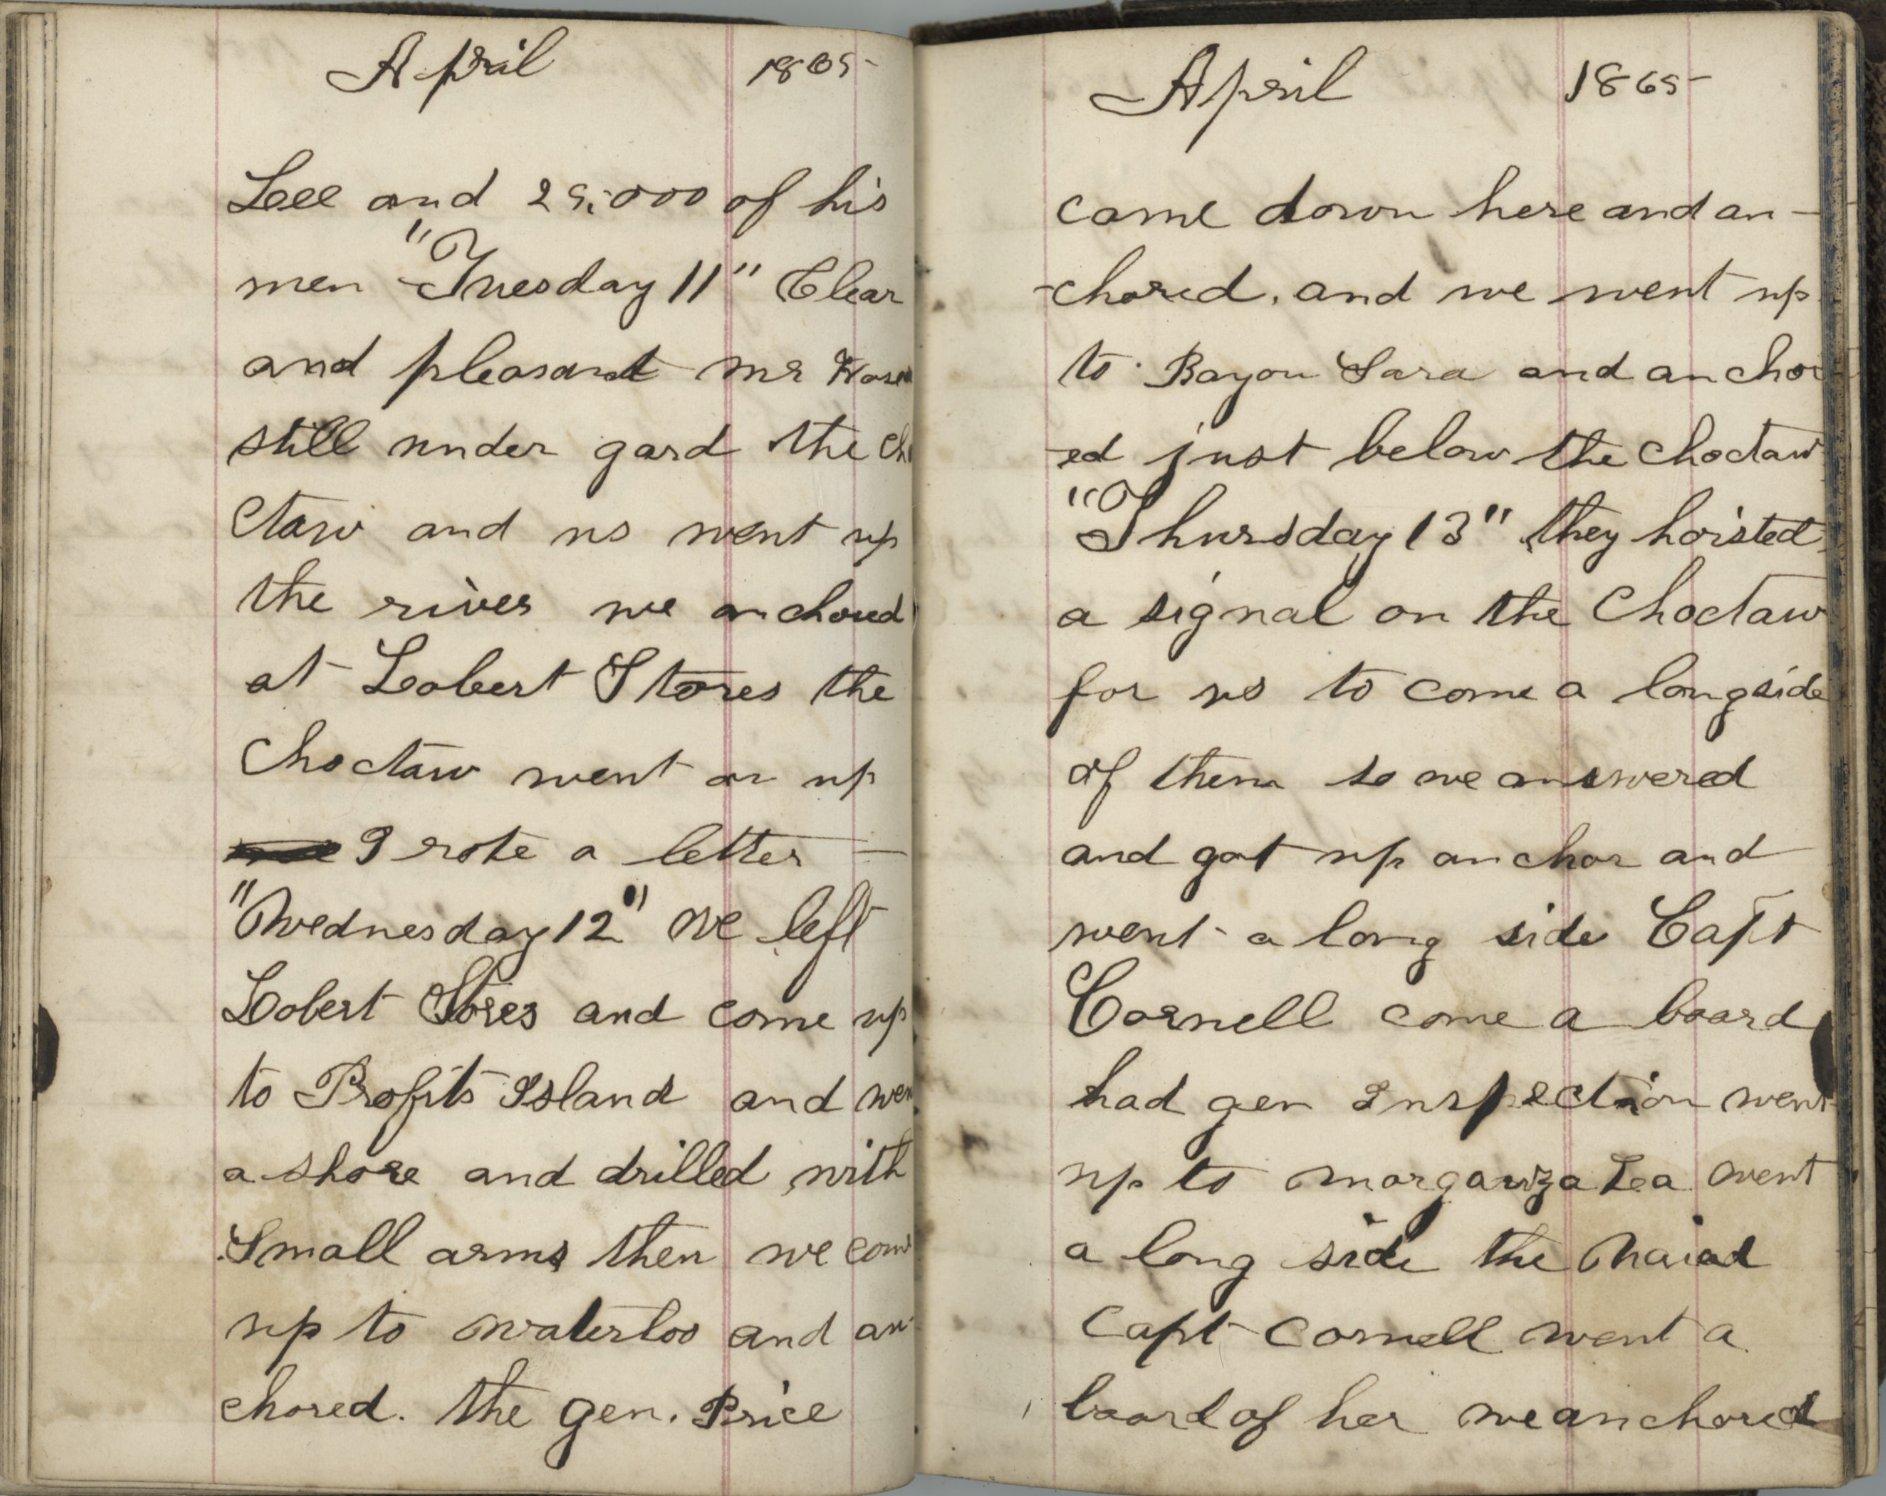 April 1865
Lee and 25,000 of his
men "Tuesday 11" Clear
and pleasant mr
still under gard the Cho
ctaw and us went up
the river we anchored
at Lobert Stores the
Choctaw went on up
I rote a letter —
"Wednesday 12" we left
Lobert Stores and come up
to Profits Island and went
a shore and drilled with
Small arms then we come
up to waterloo and an-
chored. the gen. Price
April 1865
came down here and an-
-chored. and we went up
to Bayou Sara and anchor
-ed just below the Choctaw
"Thursday 13" they hoisted
a signal on the Choctaw
for us to come a longside
of them so we answered
and got up anchor and
went a long side Capt
Cornell come a board
had gen Inspection went
up to morganza Lea went
a long side the Naiad
Capt Cornell went a
board of her we anchored